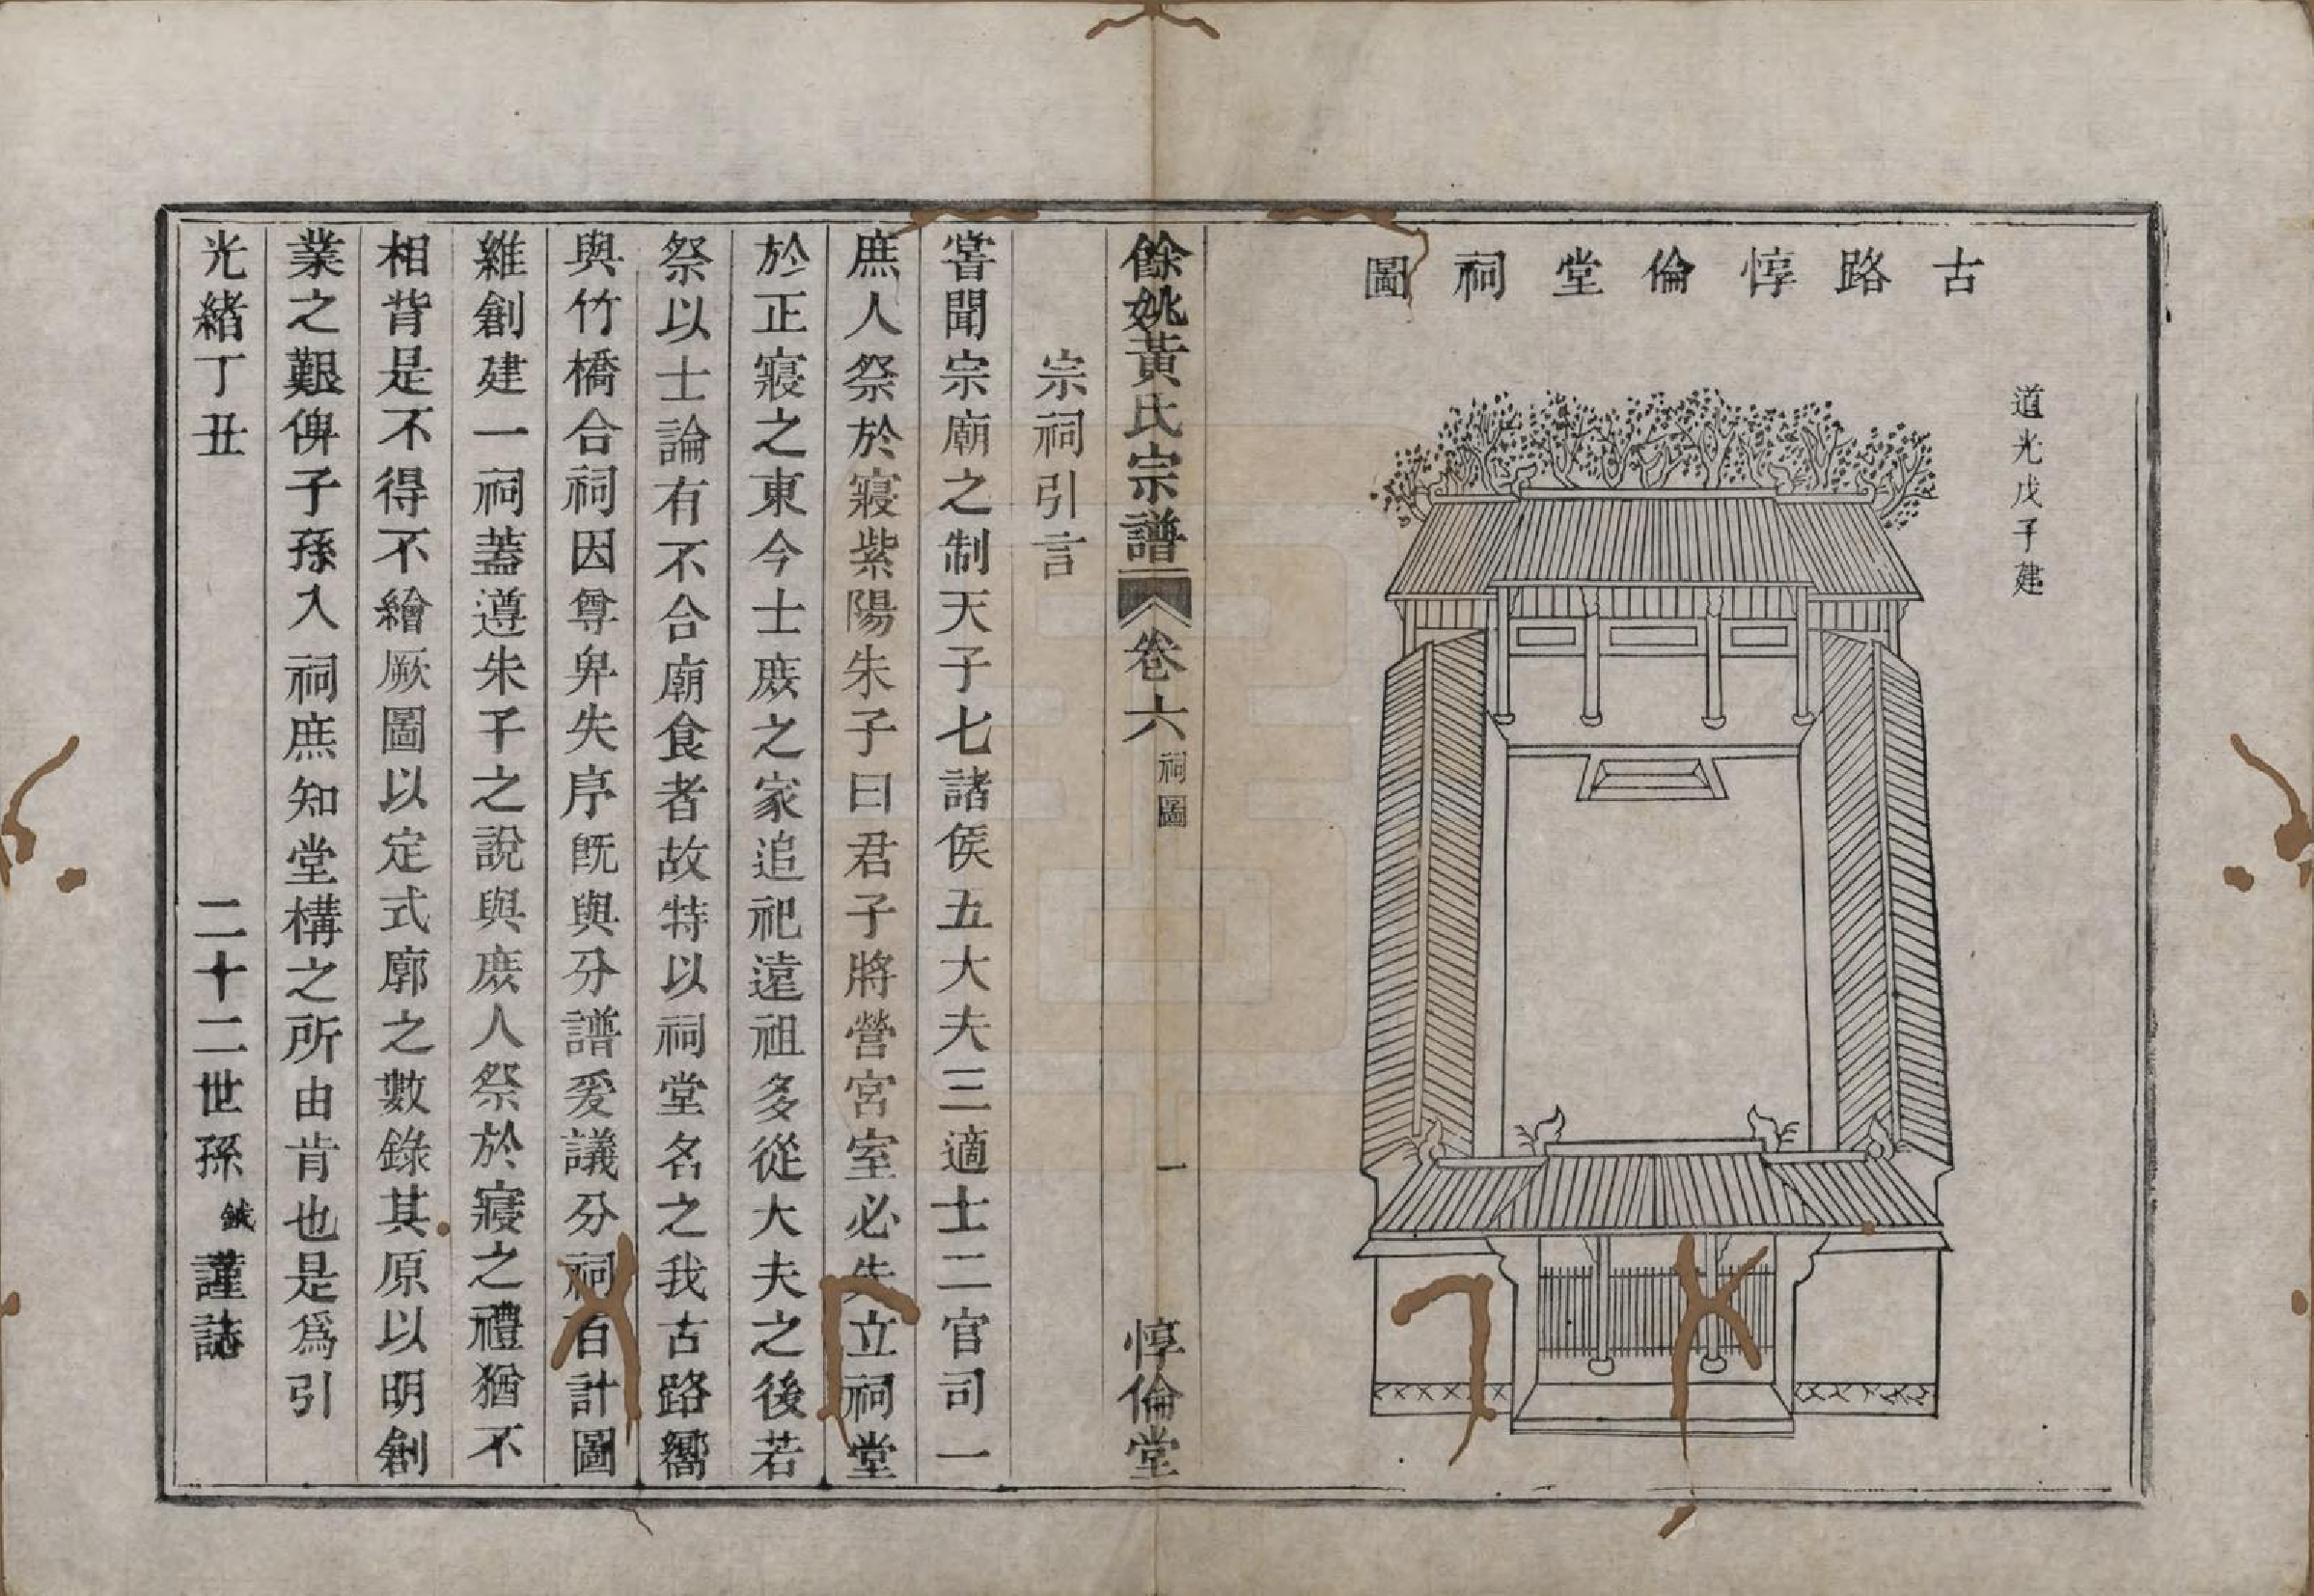 古路惇倫堂祠圖
道光戊子建
餘姚黃氏宗譜 卷六 祠圖 一 惇倫堂
宗祠引言
嘗聞宗廟之制天子七諸侯五大夫三適士二官司一
庶人祭於寢紫陽朱子曰君子將營宮室必先立祠堂
於正寢之東今士庶之家追祀遠祖多從大夫之後若
祭以士論有不合廟食者故特以祠堂名之我古路嚮
與竹橋合祠因尊卑失序旣與分譜爰議分祠百計圖
維創建一祠蓋遵朱子之說與庶人祭於寢之禮猶不
相背是不得不繪厥圖以定式廓之數錄其原以明創
業之艱俾子孫入祠庶知堂構之所由肯也是爲引
光緒丁丑 二十二世孫 鉞 謹誌